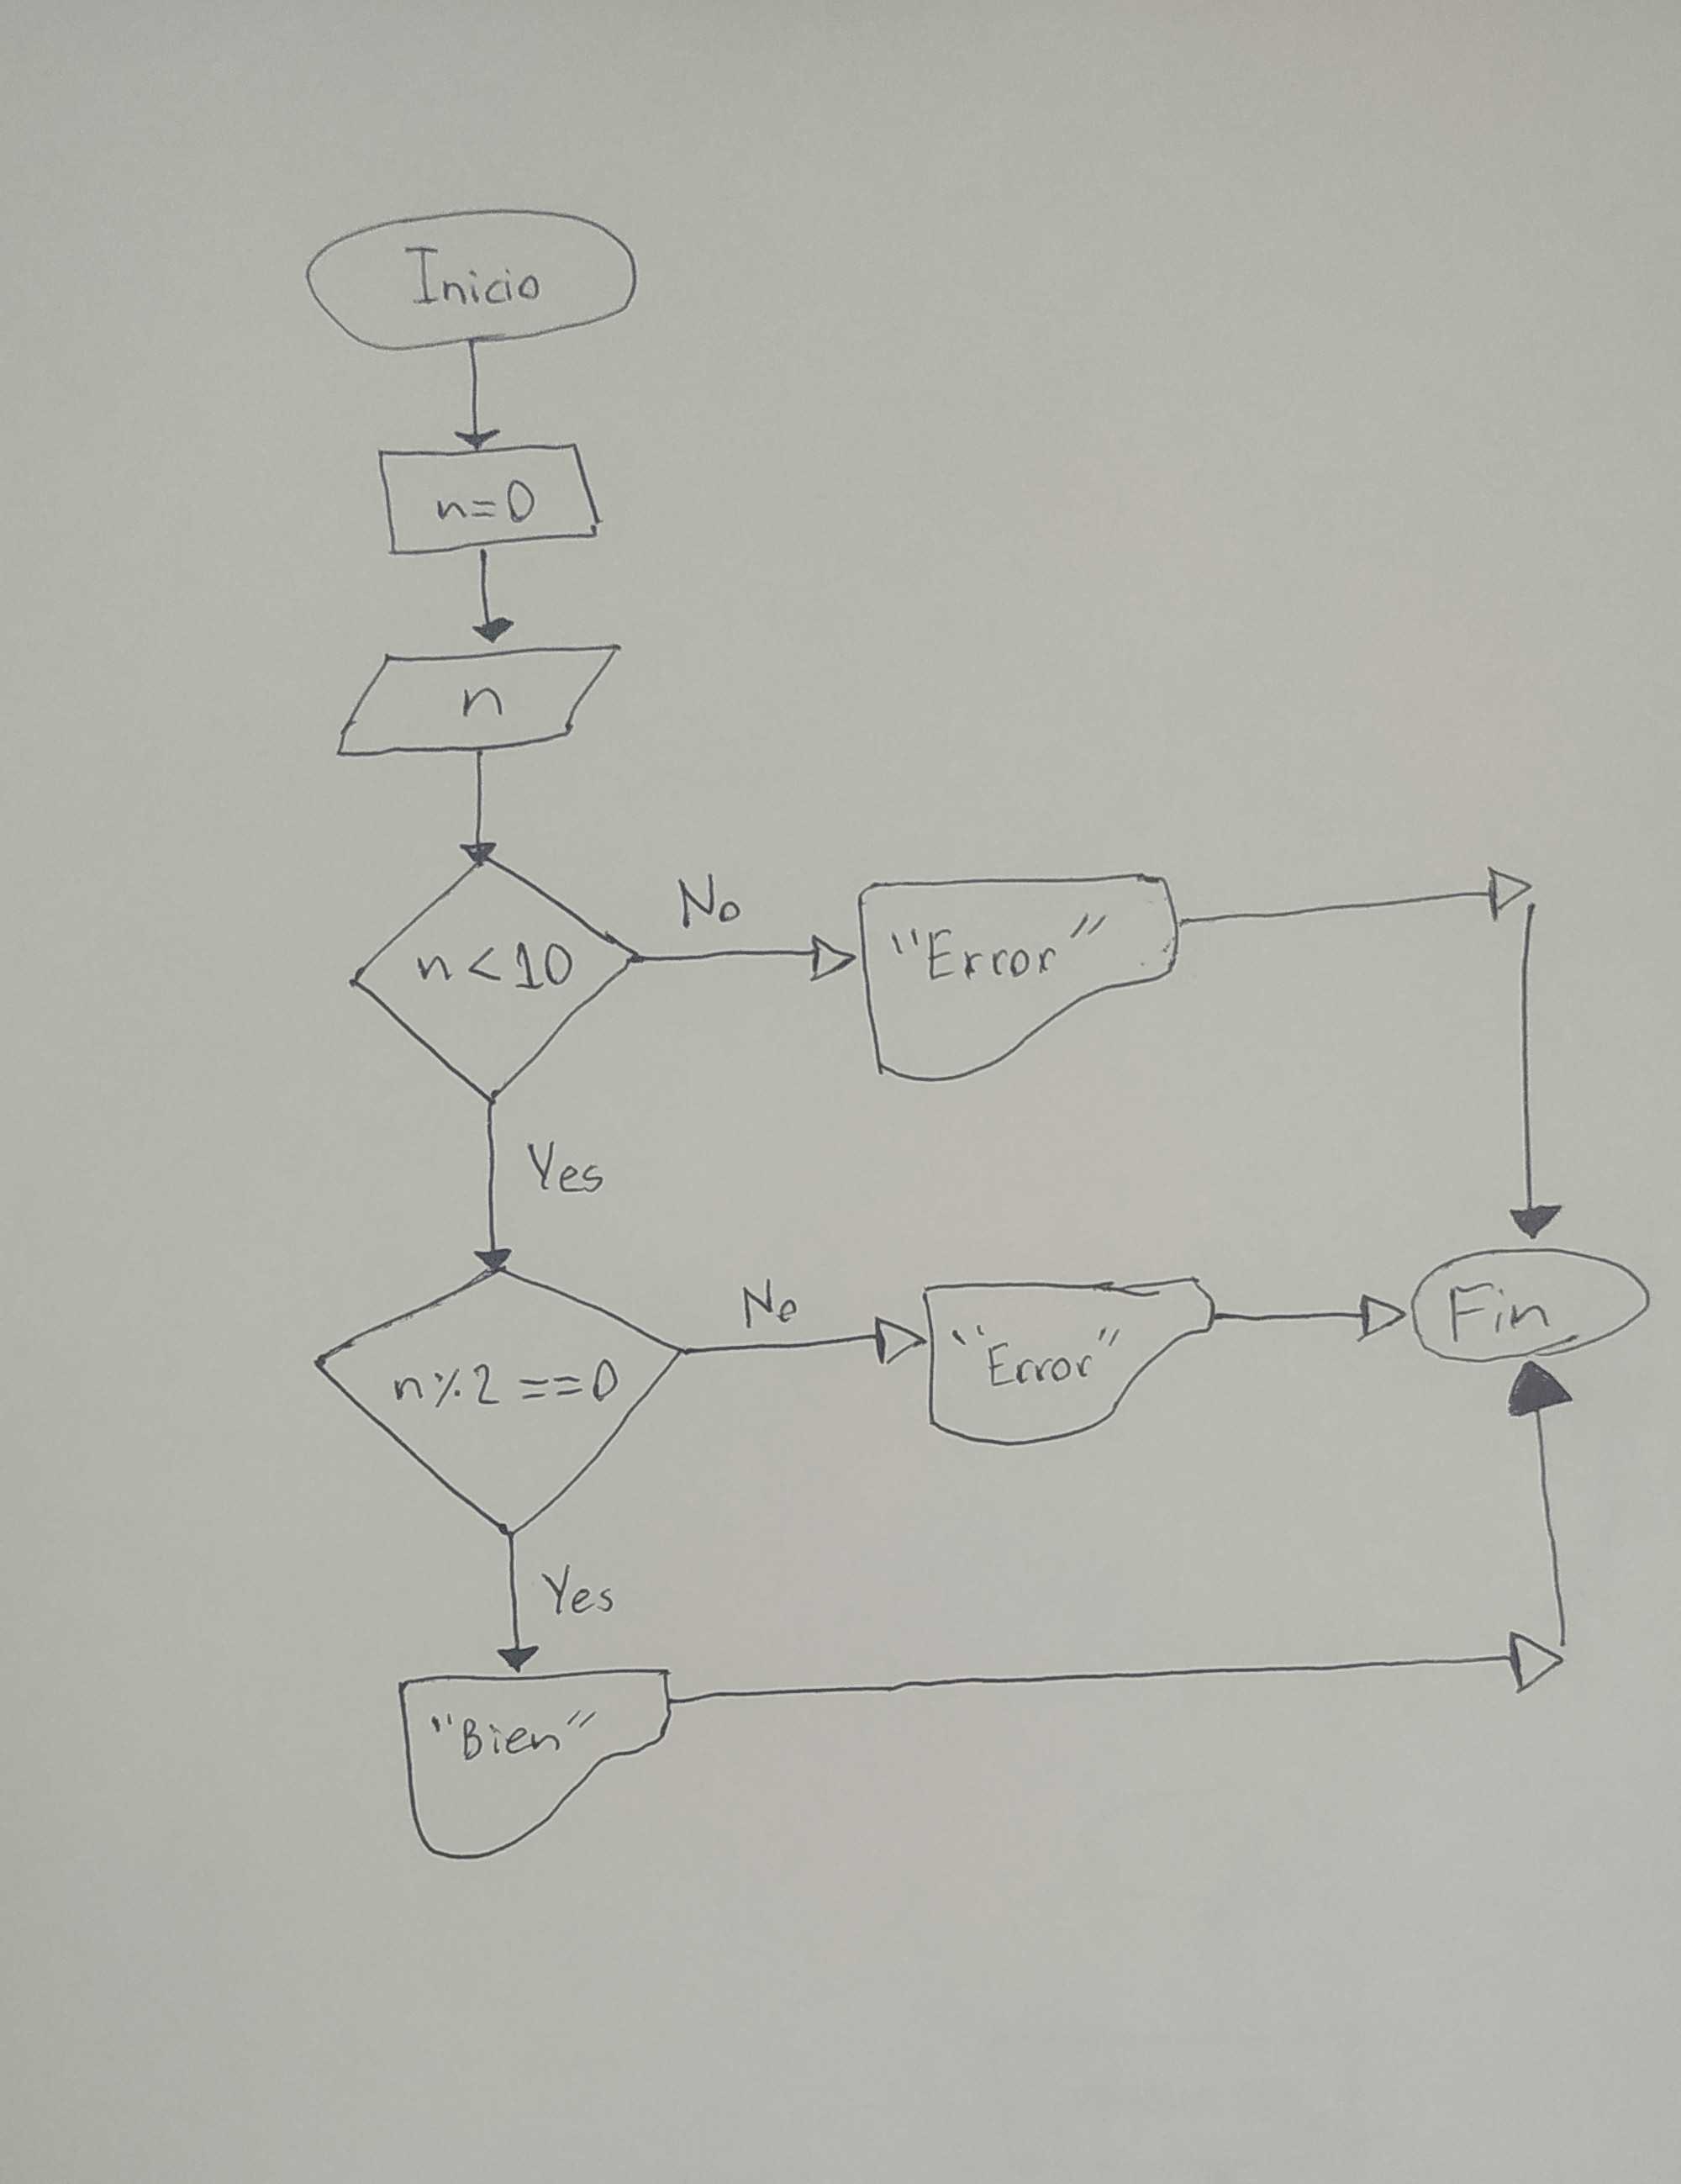 Inicio
n=0
n
n<10
No
"Error"
Yes
n%2==0
No
"Error"
Fin
Yes
"Bien"